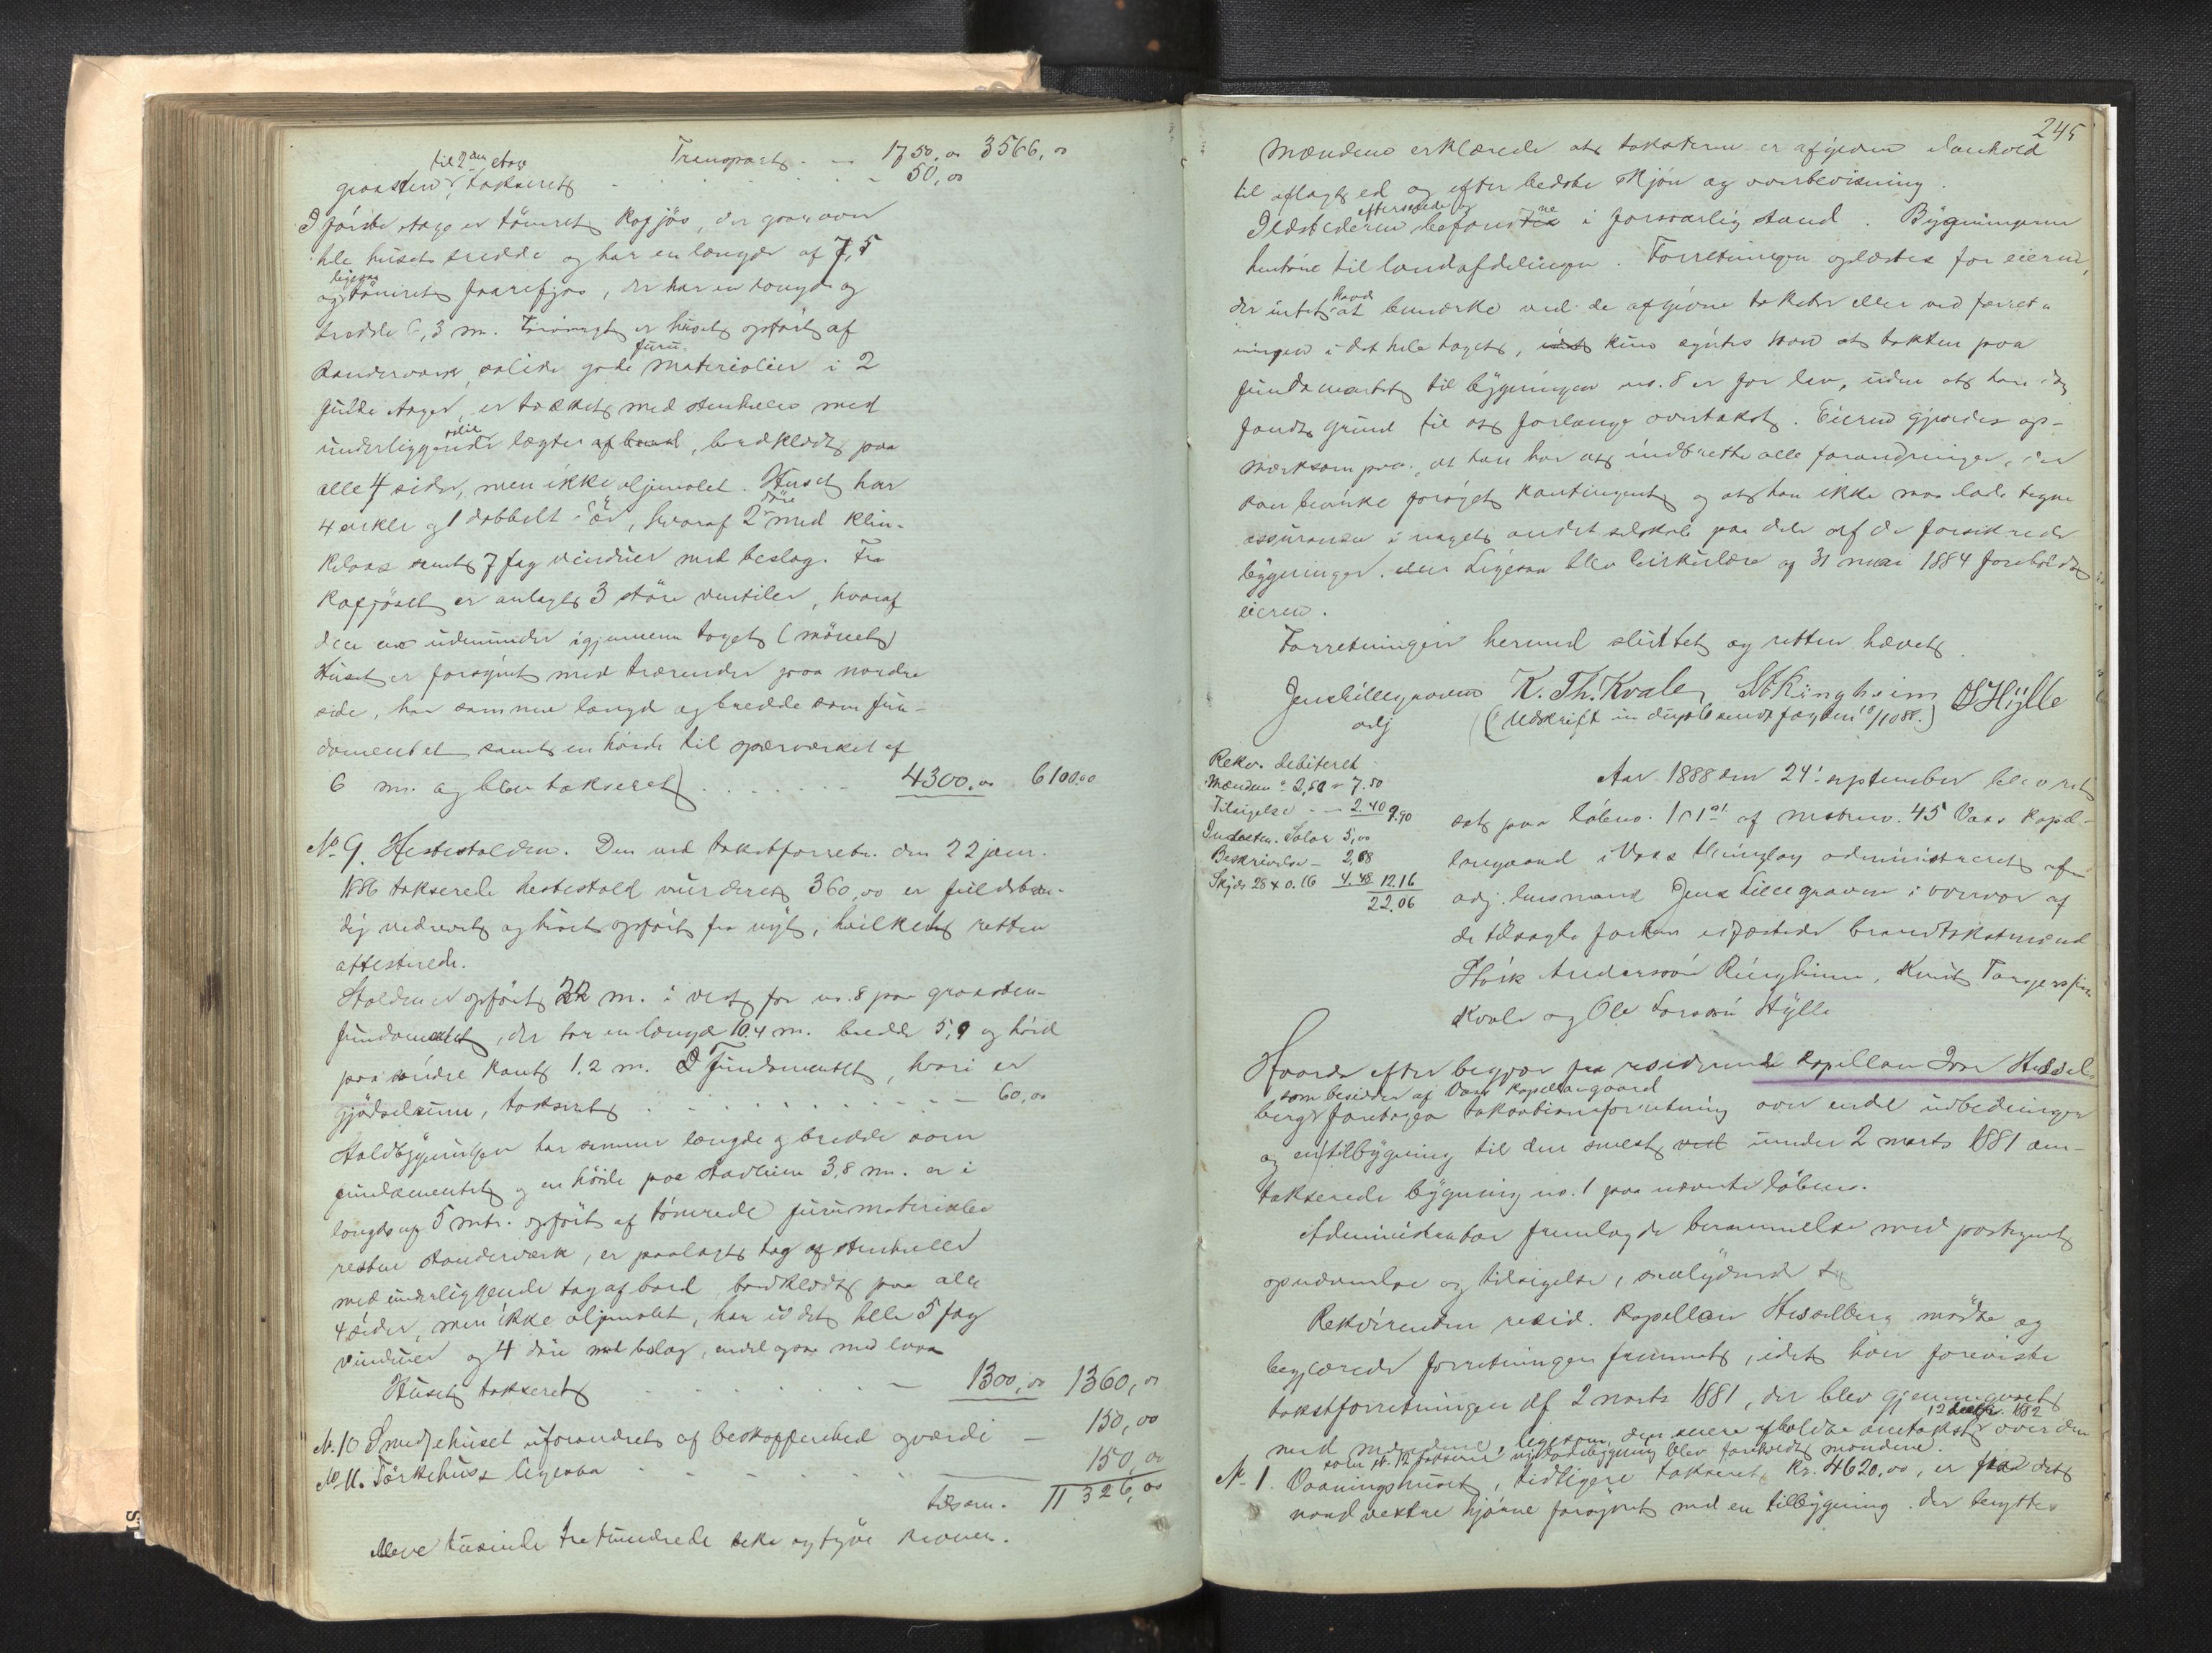 Transport - - 1750,00 3566,00
til 2den etage
graasten takseret - - - - - 50,00
I første etage er tømret kofjøs, der gaar over
hele husets bredde og har en længde af 7,5
ligesaa
og tømret faarefjøs, der har en længde og
bredde 6,3 m. Forøvrigt er huset opført af
furu
standerværk, solide gode materialier i 2
fulde etager, er tækket med stenheller med
underliggende lægter af bord, bordklædt paa
alle 4 sider, men ikke oljemalet. Huset har
4 enkle og 1 dobbelt dør, hvoraf 2 med klin-
kelaas samt 7 fag vinduer med beslag. Fra
kofjøset er anlagt 3 større ventiler, hvoraf
den ene udmunder igjennem taget (mønet)
Huset er forsynet med trærender paa nordre
side, har samme længde og bredde som fun-
damentet samt en høide til sperværket af
6 m. og blev takseret - - - 4300,00 6100,00
No 9. Hestestalden. Den ved takstforretn. den 22 janr.
1886 takserede hestestald vurderet 360,00 er fuldstæn-
dig nedrevet og huset opført fra nyt, hvilket retten
attesterede.
Stalden er opført 22 m. i vest for no. 8 paa graasten-
fundamentet, der har en længde 10.4 m. bredde 5,9 og høide
paa søndre kant 1.2 m. Fundamentet, hvori er
gjødselrum, takseret - - - - 60,00
Staldbygningen har samme længde og bredde som
fundamentet og en høide paa 3,8 m. er i
5 mtr. opført af tømrede furumaterialer
resten standerværk, er paalagt tag af stenheller
med underliggende tag af bord, bordklædt paa alle
4 sider, men ikke oljemalet, har i det hele 5 fag
vinduer og 4 døre med beslag, endel ogsaa med laas
Huset takseret - - - 1300,00 1360,00
No. 10 Smedjehuset uforandret af beskaffenhed og værdi - 150,00
No 11. Tørkehuset ligesaa - - - 150,00
tilsam. 11 326,00
elleve tusinde trehundrede seks og tyve kroner.
245
Mændene erklærede at taksterne er afgivne i henhold
til aflagt ed og efter bedste skjøn og overbevisning.
eftersaaes og
Ildstederne befandtes i forsvarlig stand. Bygningerne
henhøre til landafdelingen. Forretningen oplæstes for eieren,
havde
der intet at bemærke ved de afgivne takster eller ved forret-
ningen i det hele taget, kun syntes han at taksten paa
fundamentet til bygningen no. 8 er for lav, uden at han dog
fandt grund til at forlange overtakst. Eieren gjordes op-
mærksom paa, at han har at indberette alle forandringer, der
kan bevirke forøget kontingent og at han ikke maa lade tegne
assurance i noget andet selskab paa dele af de forsikrede
bygninger. Ligesaa blev cirkulære af 31 mai 1884 foreholdt
eieren.
Forretningen hermed sluttet og retten hævet.
Jens Lillegraven K. Th. Kvale StRingheim OLHylle
adj (Udskrift in duplo sendt fogden 18/10 88.)
Rekv. debiteret
Mændene à 2,50 = 7.50
Tilsigelse - - 2.40 9.90
Indksten. Salær 5,00
Beskrivelse - 2,68
Skyds 28 x 0.16 4.48 12.16
22.06
Aar 1888 den 24. september blev ret
sat paa løbeno. 101a1 af matrno. 45 Vass kapel-
langaard i Voss thinglag administreret af
adj. lensmand Jens Lillegraven i overvær af
de tilsagte forhen edfæstede brandtakstmænd
Størk Anderssøn Ringheim, Knut Torgerssøn
Kvale og Ole Larssøn Hylle
Hvorda efter begjær fra residerende kapellan Iver Hessel-
som besidder af Vass kapellangaard
berg foretoges takstationsforretning over endel udbedringer
og en tilbygning til den senest under 2 marts 1881 om-
takserede bygning no. 1 paa nævnte løbeno.
Administrator fremlagde berammelse med paategnet
opnævnelse og tilsigelse, saalydende
Rekvirenten resid. kapellan Hesselberg mødte og
begjærede forretningen fremmet, idet han foreviste
takstforretningen af 2 marts 1881, der blev gjennemgaaet
med mændene, ligesom den senere afholdte omtakst over den
som No. 12 takserte bygning blev foreholdt mændene.
No 1. Vaaningshuset, tidligere takseret Kr. 4620,00, er paa det
nordvestre hjørne forsynet med en tilbygning der benyttes